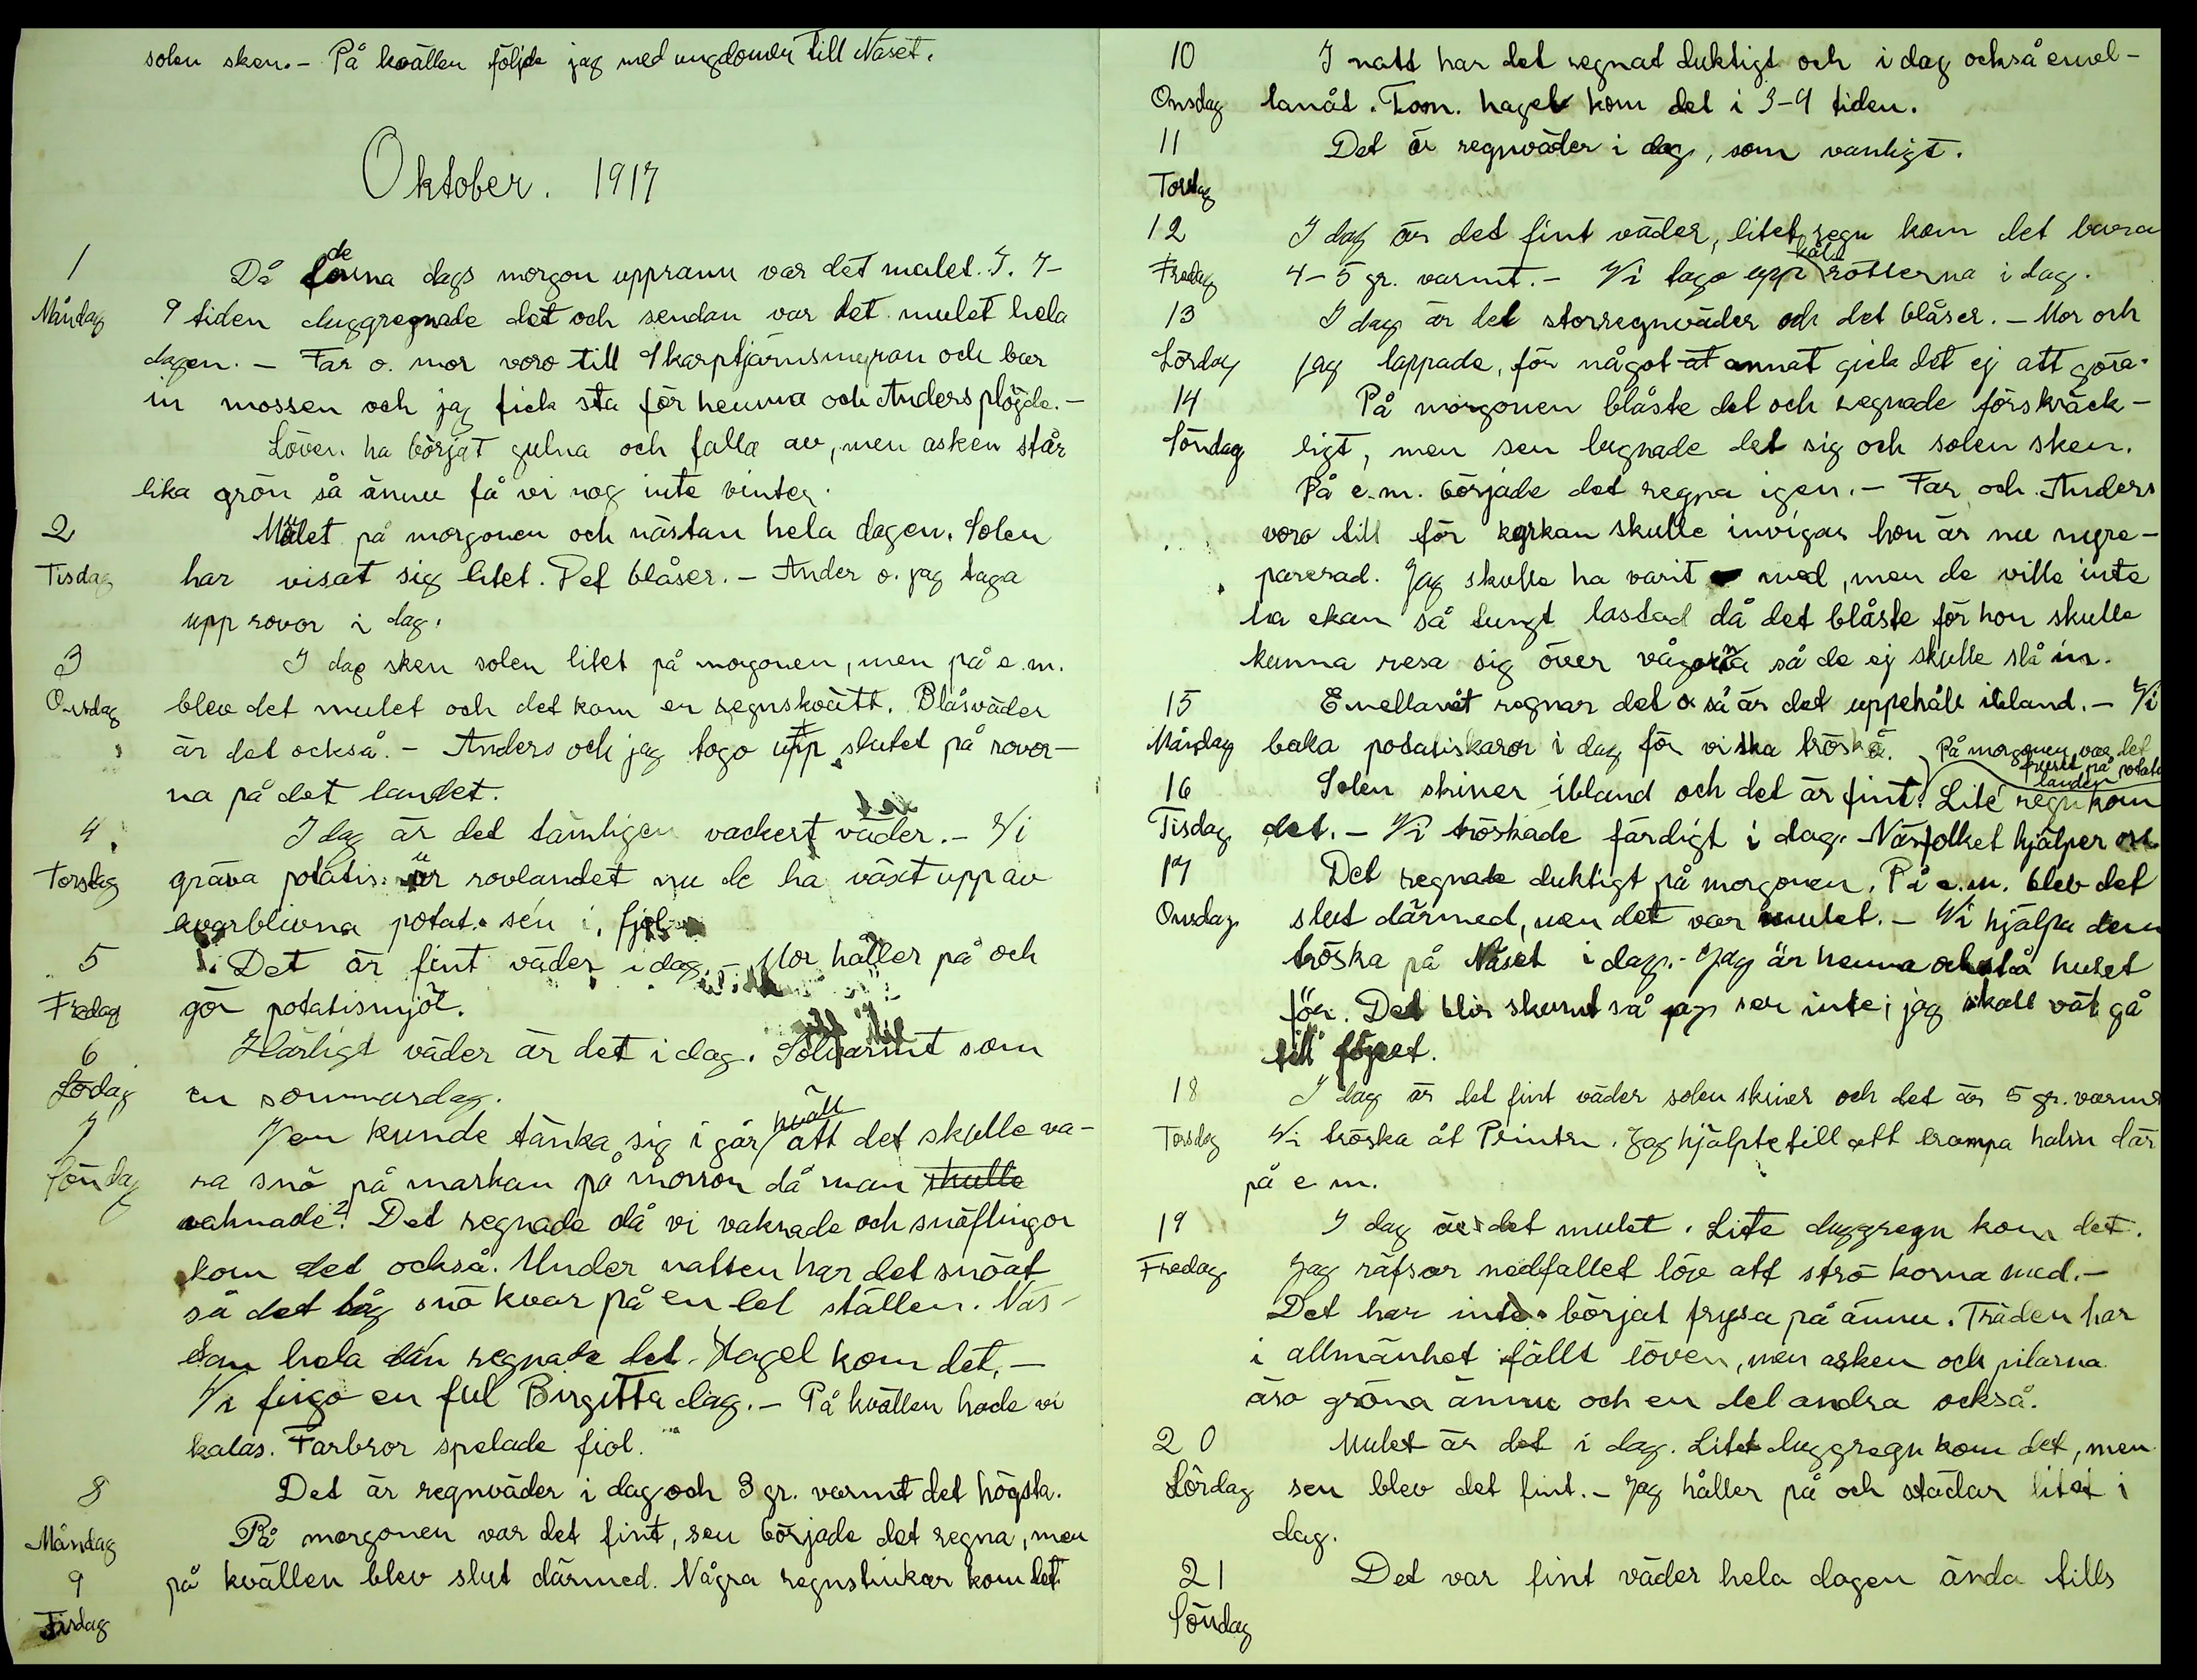 solen sken. - På kvällen följde jag med ungdomen till Näset.
Oktober. 1917
1
Måndag
Då denna dags morgon upprann var det mulet. I. 7-
9 tiden duggregnade det och sendan var det mulet hela
dagen. - Far o. mor voro till Skarptjärnsmyran och bar
in mossen och jag fick stå för hemma och Anders plöjde. -
Löven ha börjat gulna och falla av, men asken står
lika grön så ännu få vi nog inte vinter.
2
Tisdag
Mulet på morgonen och nästan hela dagen. Solen
har visat sig litet. Det blåser. - Ander o. jag taga
upp rovor i dag.
3
Onsdag
I dag sken solen litet på morgonen, men på e.m.
blev det mulet och det kom en regnskvätt. Blåsväder
är det också. - Anders och jag togo upp slutet på rovor-
na på det landet.
4
Torsdag
I dag är det tämligen vackert väder. - Vi
gräva potatis ur rovlandet nu de ha växt upp av
kvarblivna potat. sen i fjol
5
Fredag
Det är fint väder i dag. - Mor håller på och
gör potatismjöl.
6
Lördag
Härligt väder är det i dag. Solvarmt som
en sommardag.
7
Söndag
Vem kunde tänka sig i går kväll att det skulle va-
ra snö på markan på morron då man skulle
vaknade? Det regnade då vi vaknade och snöflingor
kom det också. Under natten har det snöat
så det låg snö kvar på en del ställen. Näs-
tan hela dan regnade det. Hagel kom det. -
Vi fingo en ful Birgitta dag. - På kvällen hade vi
kalas. Farbror spelade fiol.
8
Måndag
Det är regnväder i dag och 3 gr. varmt det högsta.
9
Tisdag
På morgonen var det fint, sen började det regna, men
på kvällen blev slut därmed. Några regnstinkar kom det
10
Onsdag
I natt har det regnat duktigt och i dag också emel-
lanåt. Tom. hagel kom det i 3-4 tiden.
11
Torsdag
Det är regnväder i dag, som vanligt.
12
Fredag
I dag är det fint väder, litet regn kom det bara
4-5 gr. varmt. - Vi togo upp kålrötterna i dag.
13
Lördag
I dag är det storregnväder och det blåser. - Mor och
jag lappade, för något at annat gick det ej att göra.
14
Söndag
På morgonen blåste det och regnade förskräck-
ligt, men sen lugnade det sig och solen sken.
På e.m. började det regna igen. - Far och Anders
voro till för kyrkan skulle invigas hon är nu nyre-
parerad. Jag skulle ha varit med, men de ville inte
ha ekan så tungt lastad då det blåste för hon skulle
kunna resa sig över vågorna så de ej skulle slå in.
15
Måndag
Emellanåt regnar det o så är det uppehåll ibland. - Vi
baka potatiskaror i dag för vi ska tröska.
16
Tisdag
På morgonen var det
fruset på potatis
landen
Solen skiner ibland och det är fint. Lite regn kom
det. - Vi tröskade färdigt i dag. Näsfolket hjälper oss
17
Onsdag
Det regnade duktigt på morgonen. På e.m. blev det
slut därmed, men det var mulet. - Vi hjälpa dem
tröska på Näset i dag. - Jag är hemma och stå huset
för. Det blir skumt så jag ser inte; jag skall väl gå
till föjset.
18
Torsdag
I dag är det fint väder solen skiner och det är 5 gr. varmt
Vi tröska åt Printn. Jag hjälpte till att trampa halm där
på e m.
19
Fredag
I dag är det mulet. Lite duggregn kom det.
Jag räfsar nedfallet löv att strö korna med. -
Det har inte börjat frysa på ännu. Träden har
i allmänhet fällt löven, men asken och pilarna
äro gröna ännu och en del andra också.
20
Lördag
Mulet är det i dag. Litet duggregn kom det, men
sen blev det fint. - Jag håller på och städar litet i
dag.
21
Söndag
Det var fint väder hela dagen ända tills